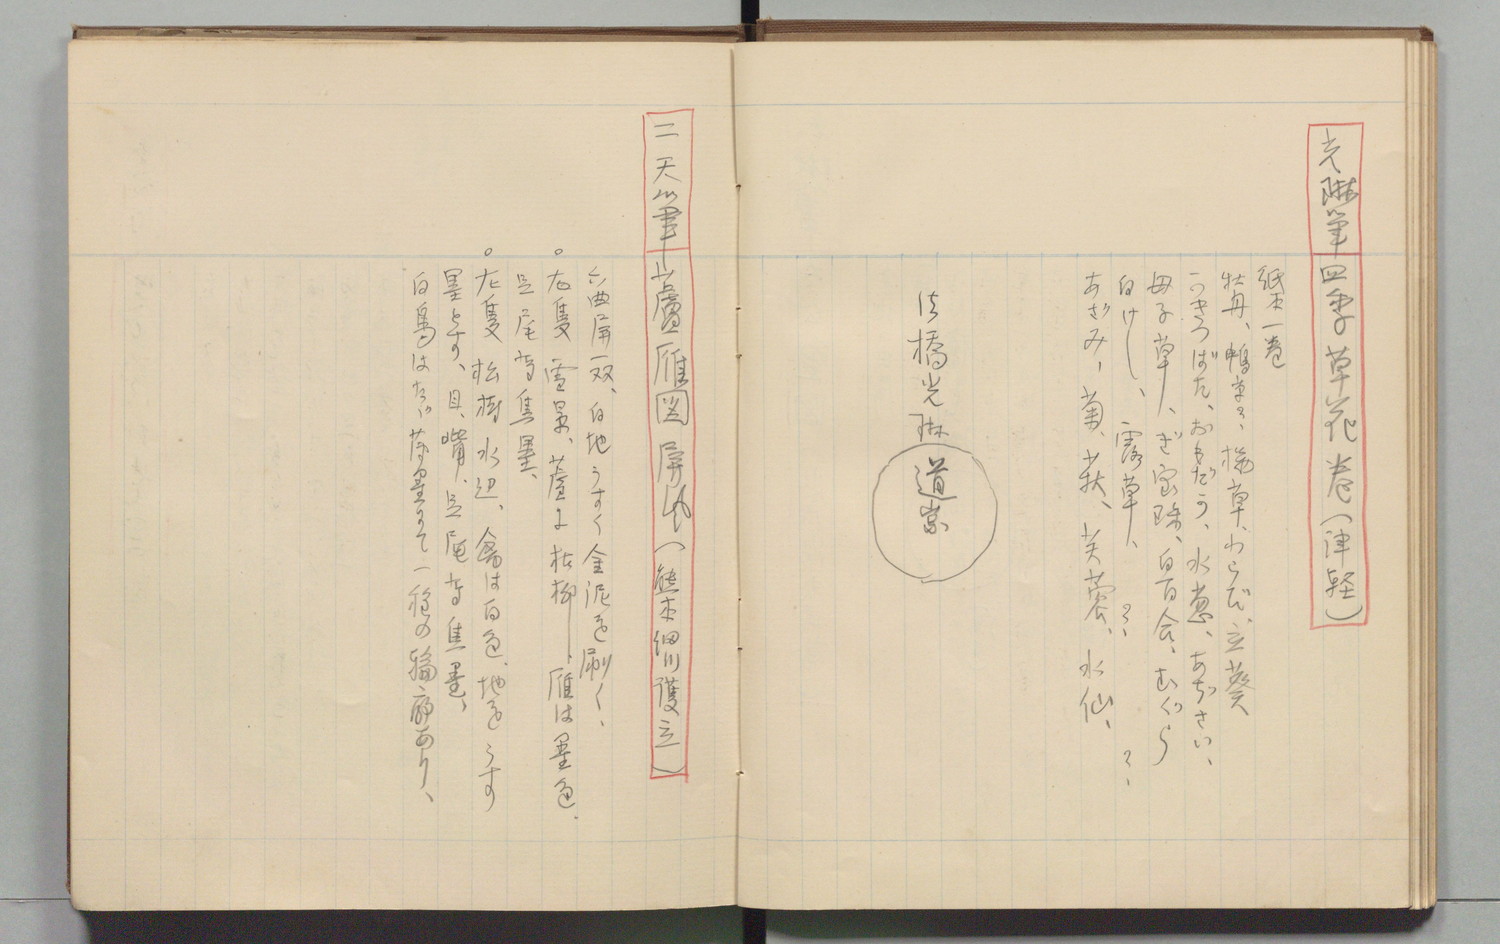 光琳筆四季草花巻(津軽)
紙本一巻
牡丹、鴨草?、桜草、わらび、立葵
かきつばた、おもだか、水葱、あぢさい、
母子草、ぎ宝珠、白百合、むぐら
白けし、露草、?、?、
あざみ、菊、萩、芙蓉、水仙、
法橋光琳
道崇
二天筆蘆雁図屏風(熊本細川護立)
六曲屏一双、白地うすく金泥を刷く、
。右隻 雪景、蘆に枯柳 雁は墨色、
足尾等焦墨、
。左隻 松樹水辺、禽は白色、地をうす
墨とす、目、嘴、足尾等焦墨、
白鳥はたゞ薄墨にて一種の輪廓あり、